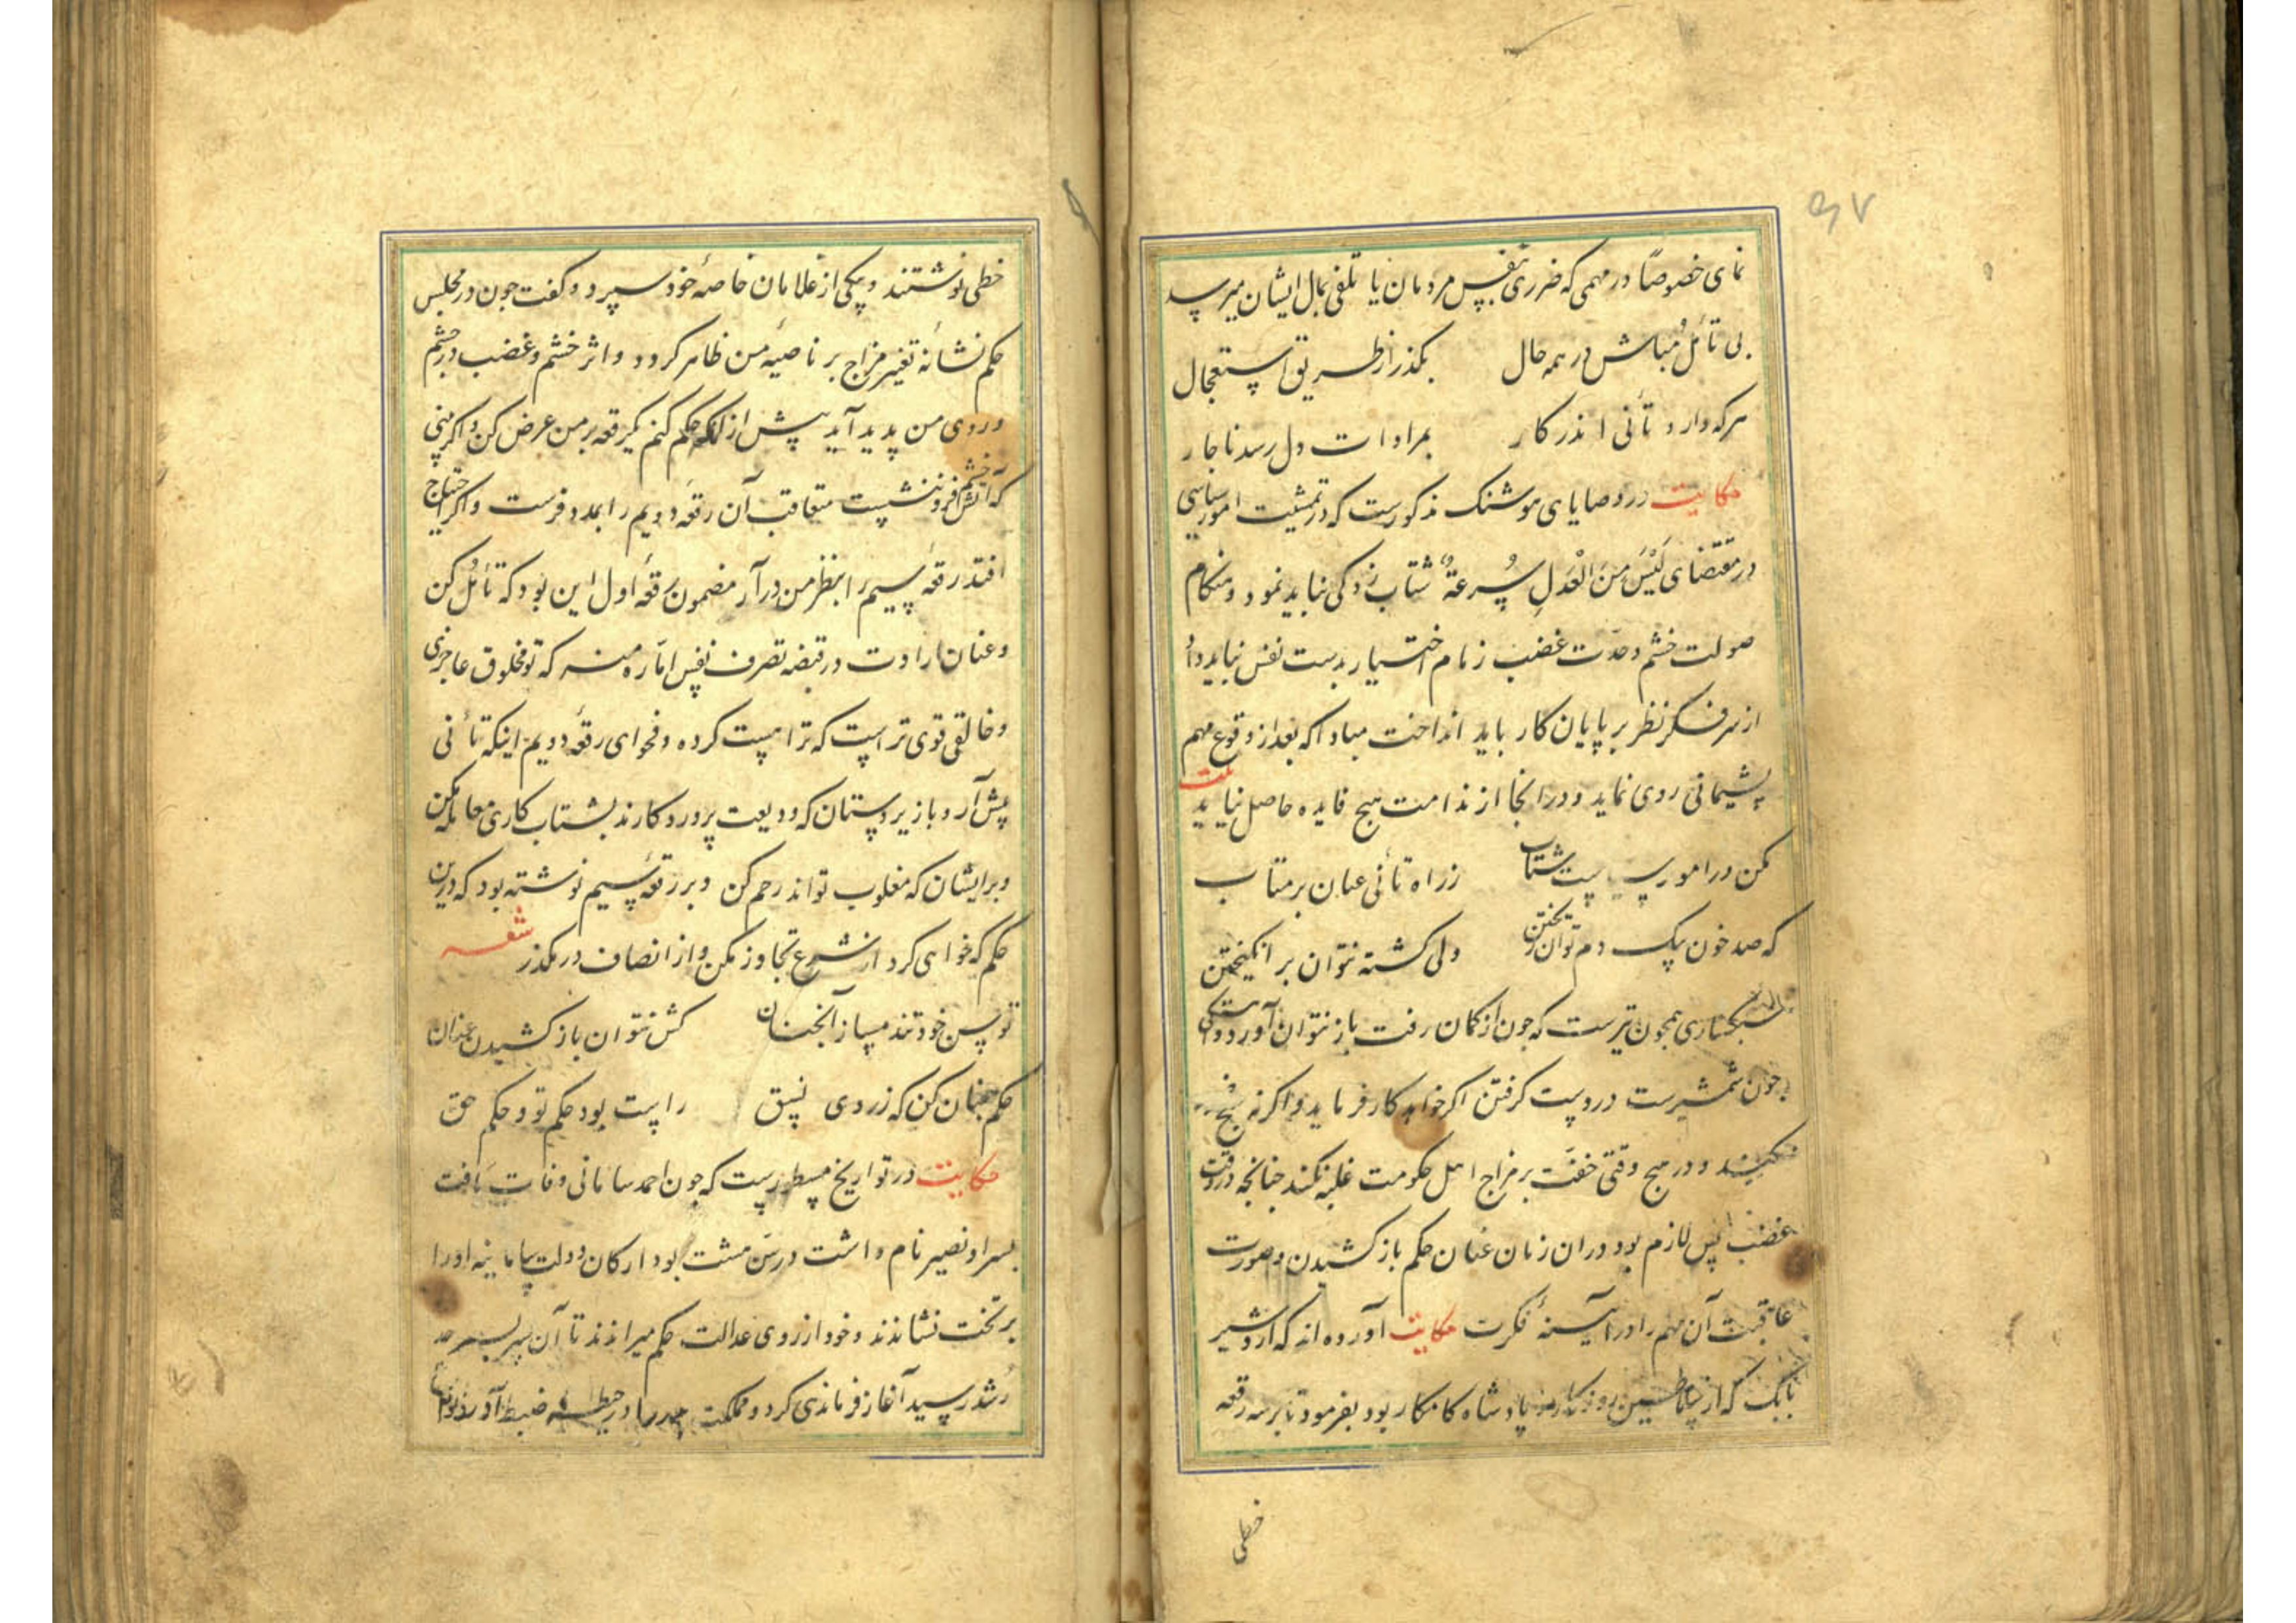 ۹۷
نمای خصوصًا در مهمی که ضرری بنفس مردمان یا تلفی بمال ایشان میرسد
بی تأمل مباش در همه حال بکذر از طریق استعجال
هرکه دارد تأنی اندر کار بمرادات دل رسد ناچار
حکایت در وصایای هوشنک مذکورست که در تمشیت امور سیاسی
در مقتضای لَیْسَ مِنَ الْعَدلِ سُرعةٌ شتاب زدکی نباید نمود و هنکام
صولت خشم و حدت غضب زمام اختیار بدست نفس نباید داد
از سر فکر نظر بر پایان کار باید انداخت مبادا که بعد از وقوع مهم
پشیمانی روی نماید و در آنجا از ندامت هیچ فایده حاصل نیاید
مکن در امور سیاست شتاب ز راه تأنی عنان برمتاب
که صد خون بیک دم توان ریختن ولی کشته نتوان بر انکیختن
همچون تیرست که چون از کمان رفت باز نتوان آورد و
چون شمشیرست در دست کرفتن اکر خواهد کار فرماید و اکر نه
نکند و در هیچ وقتی خفت بر مزاج اهل حکومت غلبه نکند چنانچه در وقت
غضب پس لازم بود در ان زمان عنان حکم باز کشیدن و صورت
عاقبت آن مهم را در آیینهٔ فکرت حکایت آورده اند که اردشیر
بابک که از سلاطین روزکار و پادشاه کامکار بود بفرمود تا بر سه رقعه
خطی
خطی نوشتند و بیکی از غلامان خاصهٔ خود سپرد و کفت چون در مجلس
حکم نشانهٔ تغیر مزاج بر ناصیهٔ من ظاهر کردد و اثر خشم و غضب در چشم
و روی من پدید آید پیش از انکه حکم کنم یک رقعه بر من عرض کن و اکر بینی
که آتش خشم فرو ننشست متعاقب آن رقعهٔ دویم را بمدد فرست و اکر احتیاج
افتد رقعهٔ سیم را بنظر من در آر مضمون رقعهٔ اول این بود که تأمل کن
و عنان ارادت در قبضه تصرف نفس اماره منه که تو مخلوق عاجزی
و خالقی قوی تر است که ترا هست کرده و فحوای رقعهٔ دویم اینکه تأنی
پیش آر و با زیردستان که ودیعت پروردکارند بشتاب کاری معامله مکن
و بر ایشان که مغلوب تواند رحم کن و بر رقعهٔ سیم نوشته بود که درین
حکم که خواهی کرد از شرع تجاوز مکن و از انصاف در مکذر شعر
توسن خود تند مساز آنچنان کش نتوان باز کشیدن عنان
حکم چنان کن که ز روی نسق راست بود حکم تو و حکم حق
حکایت در تواریخ مسطورست که چون احمد سامانی وفات یافت
پسر او نصیر نام داشت در سن هشت بود ارکان دولت سامانیه او را
بر تخت نشاندند و خود از روی عدالت حکم میراندند تا آن پسر بسرحد
رشد رسید آغاز فرماندهی کرد و مملکت پدر را در حیطهٔ ضبط آورد